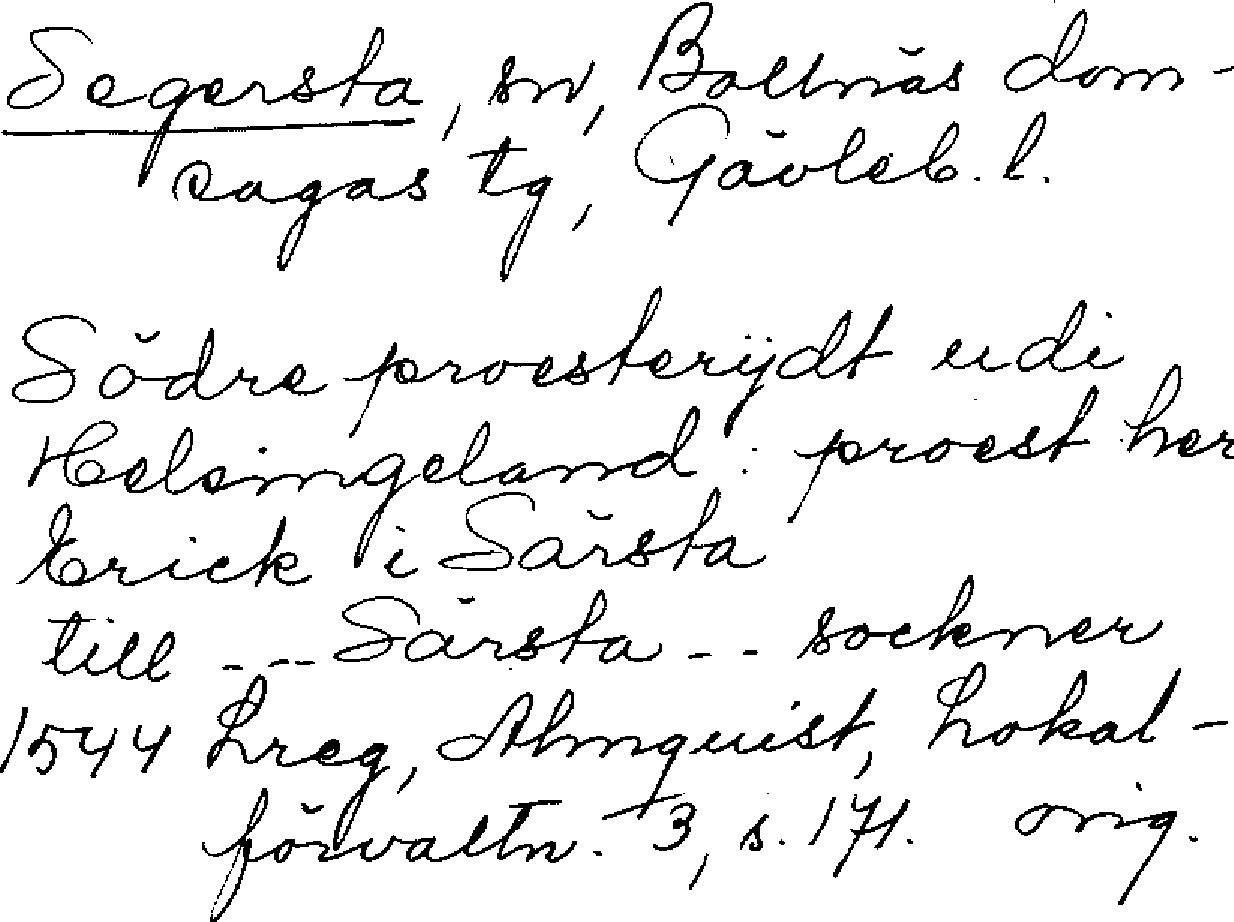 Segersta, sn, Bollnäs dom-
sagas tg, Gävleb. l.
Södre proesterÿdt udi
Helsingeland: proest her
Erick i Särsta
till --- Särsta -- sockner
1544 Lreg, Almquist, Lokal-
förvaltn. 3, s. 171. orig.